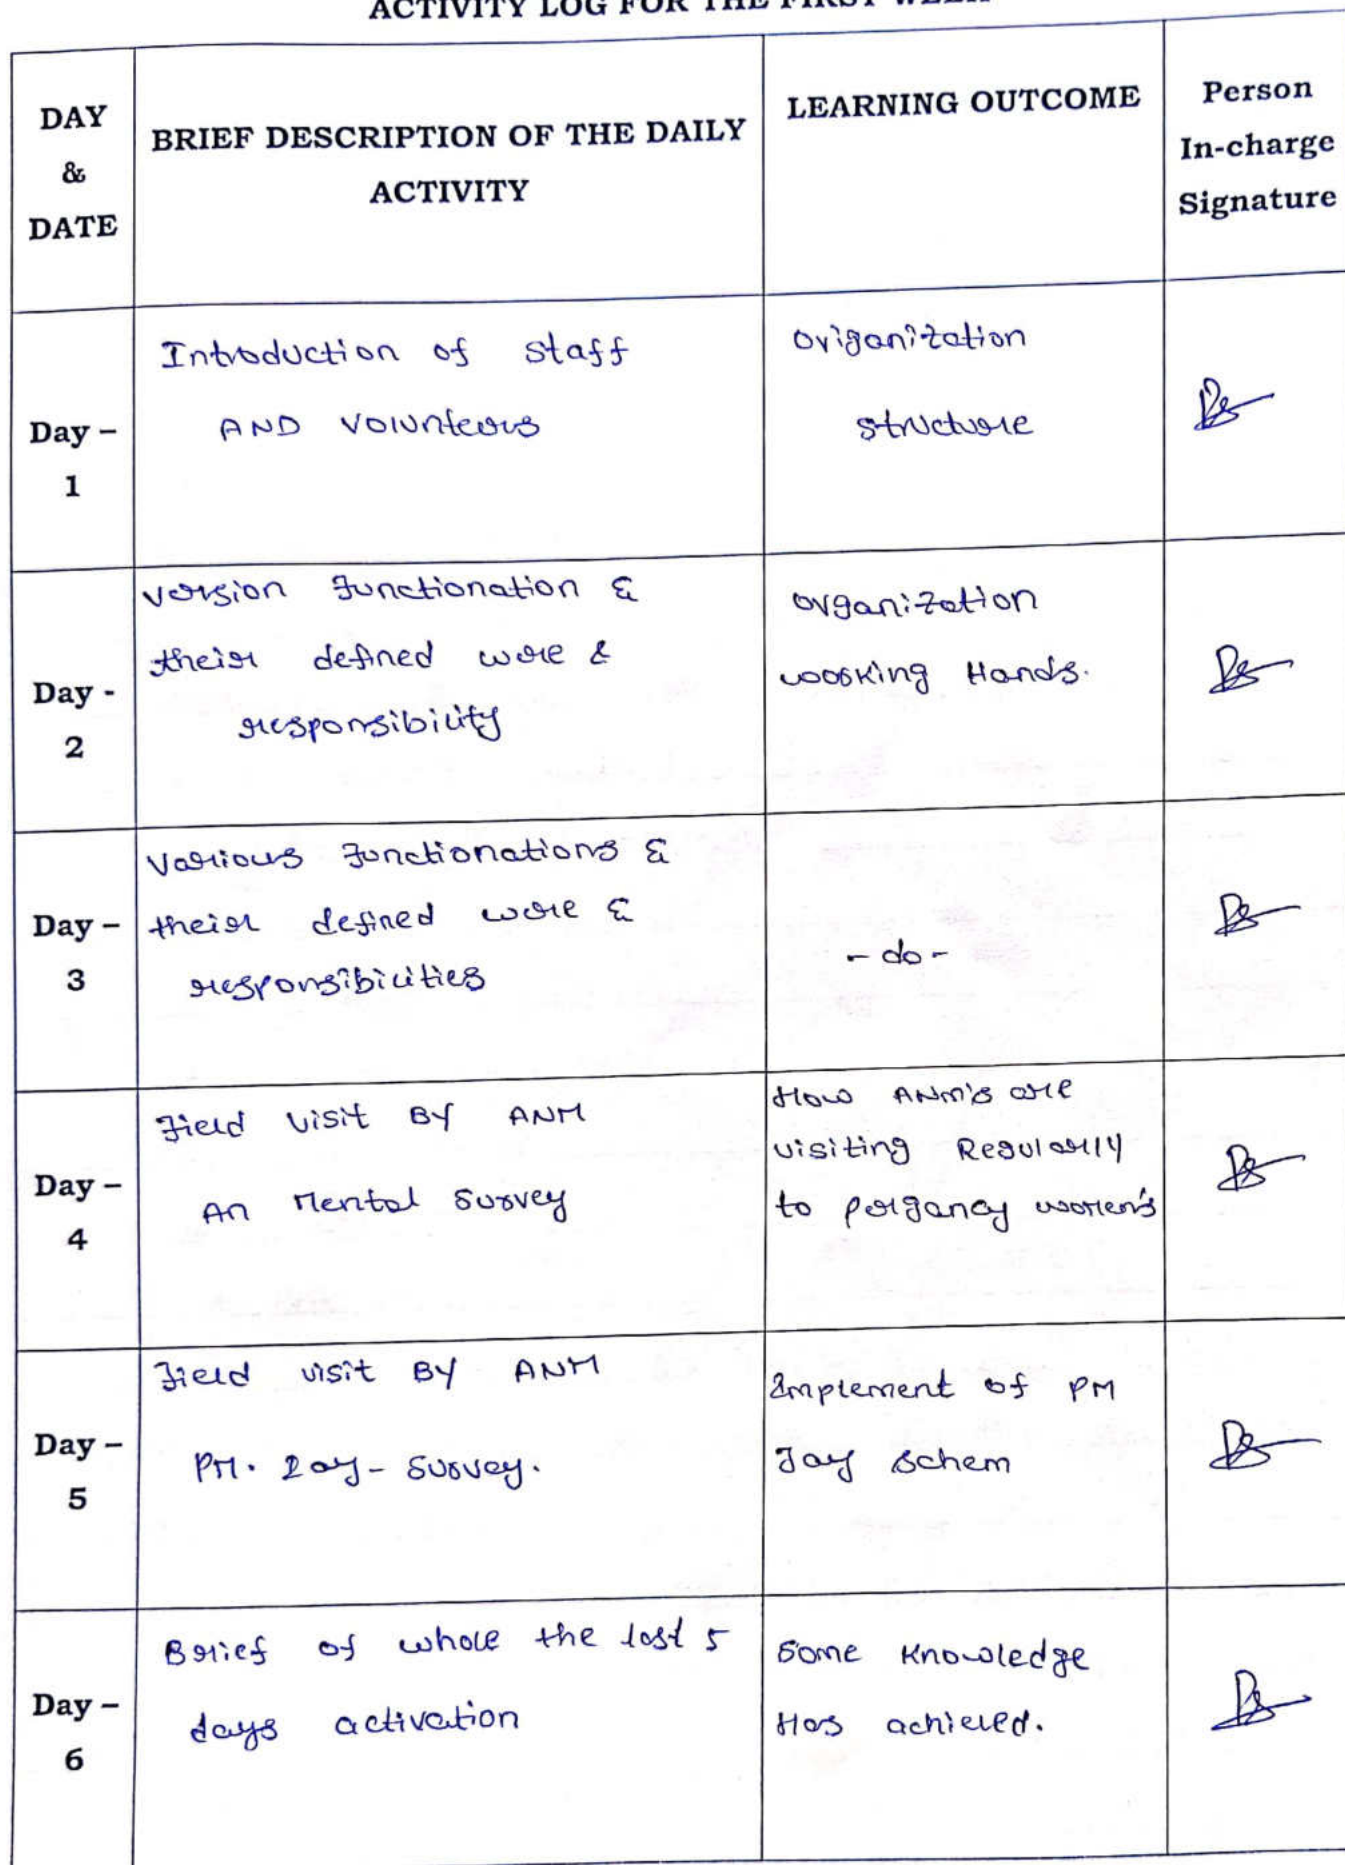 ACTIVITY LOG FOR THE FIRST WEEK
DAY
&
DATE
BRIEF DESCRIPTION OF THE DAILY
ACTIVITY
LEARNING OUTCOME
Person
In-charge
Signature
Day –
1
Introduction of staff
AND volunteers
Origanization
structure
Day -
2
version functionation &
their defined wore &
responsibility
organization
working Hands.
Day –
3
Various functionations &
their defined wore &
responsibilities
- do -
Day –
4
Field visit By ANM
An Mental Survey
How ANM's are
visiting Regularly
to pergancy women's
Day –
5
Field visit By ANM
PM. Jay - Survey.
Implement of PM
Jay Schem
Day –
6
Brief of whole the last 5
days activation
Some Knowledge
Has achieved.